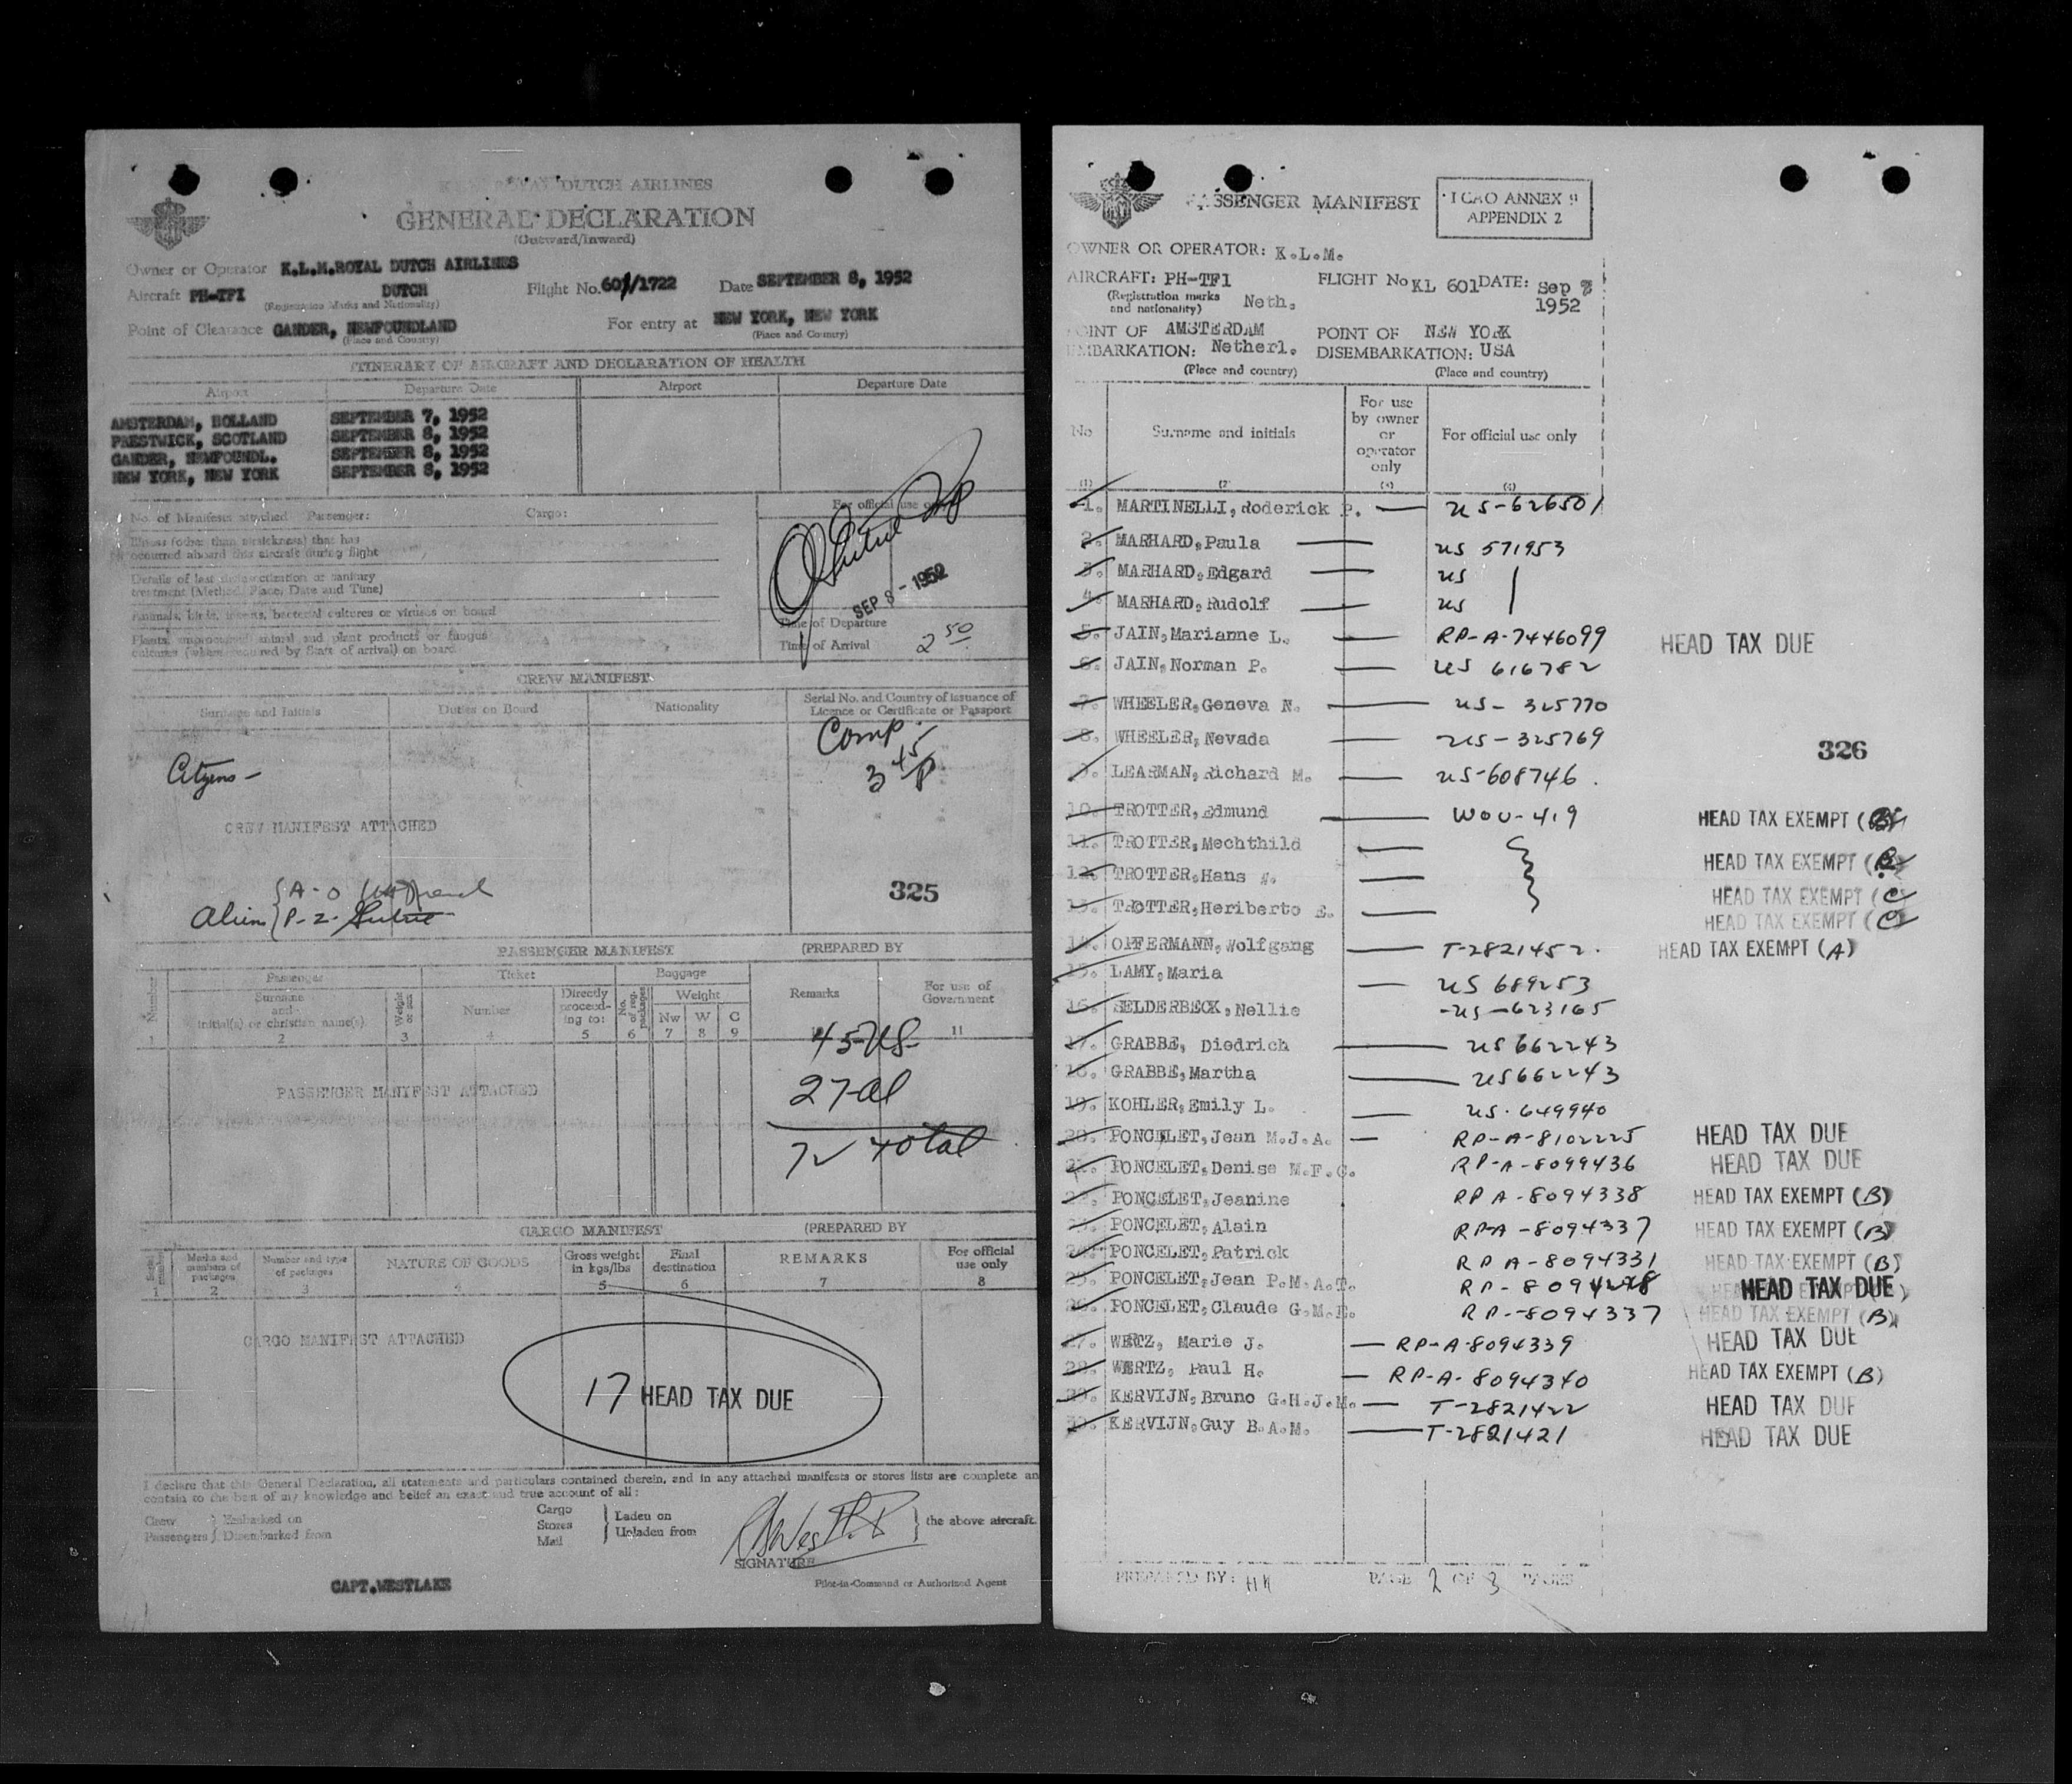 ROYAL DUTCH AIRLINES
GENERAL DECLARATION
(Outward/Inward)
Owner or Operator K.L.M.ROYAL DUTCH AIRLINES
Aircraft PH-TFI DUTCH Flight No. 601/1722 Date SEPTEMBER 8, 1952
(Registration Marks and Nationality)
Point of Clearance GANDER, NEWFOUNDLAND For entry at NEW YORK, NEW YORK
(Place and Country) (Place and Country)
ITINERARY OF AIRCRAFT AND DECLARATION OF HEALTH
Airport Departure Date Airport Departure Date
AMSTERDAM, HOLLAND SEPTEMBER 7, 1952
PRESTWICK, SCOTLAND SEPTEMBER 8, 1952
GANDER, NEWFOUNDL. SEPTEMBER 8, 1952
NEW YORK, NEW YORK SEPTEMBER 8, 1952
No. of Manifests attached Passenger: Cargo: For official use only
Illness (other than airsickness) that has
occurred aboard this aircraft during flight
Details of last disinsectization or sanitary
treatment (Method, Place, Date and Time)
SEP 8 - 1952
Animals, birds, insects, bacterial cultures or viruses on board
Time of Departure
Plants, unprocessed animal and plant products or fungus
cultures (where required by State of arrival) on board
Time of Arrival 2 50
CREW MANIFEST
Surname and Initials Duties on Board Nationality Serial No. and Country of issuance of
Licence or Certificate or Passport
Comp.
3 45 P
Citizens -
CREW MANIFEST ATTACHED
325
A-O
Alien P-Z
PASSENGER MANIFEST (PREPARED BY
Passenger Ticket Baggage
Number Surname and initial(s) or christian name(s) Weight or sex Number Directly proceeding to: No. of reg. packages Weight Nw W C Remarks For use of Government
1 2 3 4 5 6 7 8 9 11
45-US-
PASSENGER MANIFEST ATTACHED
27-al
72 total
CARGO MANIFEST (PREPARED BY
Serial number Marks and numbers of packages Number and type of packages NATURE OF GOODS Gross weight in kgs/lbs Final destination REMARKS For official use only
1 2 3 4 5 6 7 8
CARGO MANIFEST ATTACHED
17 HEAD TAX DUE
I declare that this General Declaration, all statements and particulars contained therein, and in any attached manifests or stores lists are complete an
contain to the best of my knowledge and belief an exact and true account of all:
Crew Embarked on Cargo Laden on
Passengers Disembarked from Stores Unladen from the above aircraft.
Mail
SIGNATURE
CAPT.WESTLAKE Pilot-in-Command or Authorized Agent
PASSENGER MANIFEST
ICAO ANNEX 9
APPENDIX 2
OWNER OR OPERATOR: K.L.M.
AIRCRAFT: PH-TFI FLIGHT No KL 601 DATE: Sep
(Registration marks and nationality) Neth. 1952
POINT OF EMBARKATION: AMSTERDAM Netherl. POINT OF DISEMBARKATION: NEW YORK USA
(Place and country) (Place and country)
No Surname and initials For use by owner or operator only For official use only
(1) (2) (3) (4)
1. MARTINELLI, Roderick P. — US-626501
2. MARHARD, Paula — US 571953
3. MARHARD, Edgard — US
4. MARHARD, Rudolf — US
5. JAIN, Marianne L. — RP-A-7446099 HEAD TAX DUE
6. JAIN, Norman P. — US 616782
7. WHEELER, Geneva N. — US- 325770
8. WHEELER, Nevada — US-325769
326
9. LEARMAN, Richard M. — US-608746.
10. TROTTER, Edmund — WOU-419 HEAD TAX EXEMPT
11. TROTTER, Mechthild — HEAD TAX EXEMPT (B)
12. TROTTER, Hans W. — HEAD TAX EXEMPT (C)
13. TROTTER, Heriberto E. — HEAD TAX EXEMPT (C)
14. OPFERMANN, Wolfgang — T-2821452. HEAD TAX EXEMPT (A)
15. LAMY, Maria — US 689253
16. SELDERBECK, Nellie -US-623165
17. GRABBE, Diedrich — US 662243
18. GRABBE, Martha — US 662243
19. KOHLER, Emily L. — US. 649940
20. PONCELET, Jean M.J.A. — RP-A-8102225 HEAD TAX DUE
21. PONCELET, Denise M.F.G. RP-A-8099436 HEAD TAX DUE
22. PONCELET, Jeanine RP A-8094338 HEAD TAX EXEMPT (B)
23. PONCELET, Alain RP-A-8094337 HEAD TAX EXEMPT (B)
24. PONCELET, Patrick RP A-8094331 HEAD TAX EXEMPT (B)
25. PONCELET, Jean P.M.A.T. RP- HEAD TAX DUE
26. PONCELET, Claude G.M. RP-8094337 HEAD TAX EXEMPT (B)
27. WERTZ, Marie J. — RP-A-8094339 HEAD TAX DUE
28. WERTZ, Paul H. — RP-A-8094340 HEAD TAX EXEMPT (B)
29. KERVIJN, Bruno G.H.J.M. — T-2821422 HEAD TAX DUE
30. KERVIJN, Guy B.A.M. — T-2821421 HEAD TAX DUE
PREPARED BY: PAGE 2 OF 3 PAGES